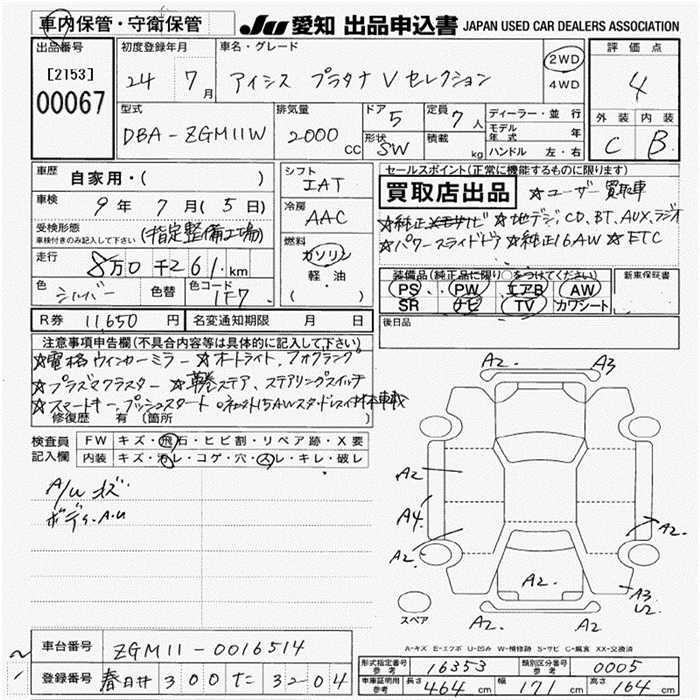 車内保管・守衛保管
JU 愛知 出品申込書 JAPAN USED CAR DEALERS ASSOCIATION
出品番号
[2153]
00067
初度登録年月
24 7月
車名・グレード
アイシス プラタナ V セレクション
2WD
4WD
評価点
4
外装 内装
C B
型式
DBA-ZGM11W
排気量
2000 CC
ドア 5
形状 SW
定員 7人
積載 kg
ディーラー・並行
モデル年式 年
ハンドル 左・右
車歴 自家用・( )
車検 9年 7月(5日)
受検形態
車検付きのみ記入して下さい
(指定整備工場)
走行 8万0千261km
色 シルバー 色替 色コード 1F7
シフト
IAT
冷房
AAC
燃料
ガソリン
軽油
( ・ )
R券 11,650円 名変通知期限 月 日
セールスポイント(正常に機能するものに限ります)
買取店出品 ☆ユーザー買取車
☆純正メモナビ ☆地デジ, CD, BT, AUX, ラジオ
☆パワースライドドア ☆純正16AW ☆ETC
装備品(純正品に限り○をつけてください)
PS PW エアB AW
SR ナビ TV カワシート
新車保証書
後日品
注意事項申告欄(不具合内容等は具体的に記入して下さい)
☆電格ウィンカーミラー ☆オートライト, フォグランプ
☆プラズマクラスター ☆革巻ステア、ステアリングスイッチ
☆スマートキー, プッシュスタート
修復歴 有 (箇所 )
検査員
記入欄
FW キズ・飛石・ヒビ割・リペア跡・X要
内装 キズ・汚レ・コゲ・穴・スレ・キレ・破レ
A/W キズ
ボディ・A.U
A2. A3
A2
A4.
A2.
A2.
A2.
A3
U2.
A2. A2.
スペア
A-キズ E-エクボ U-凹ミ W-補修跡 S-サビ C-腐食 XX-交換済
車台番号 ZGM11-0016514
登録番号 春日井 300 て 3204
形式指定番号
参考
16353
類別区分番号
参考
0005
車庫証明用
参考
長さ 464cm 幅 171cm 高さ 164cm